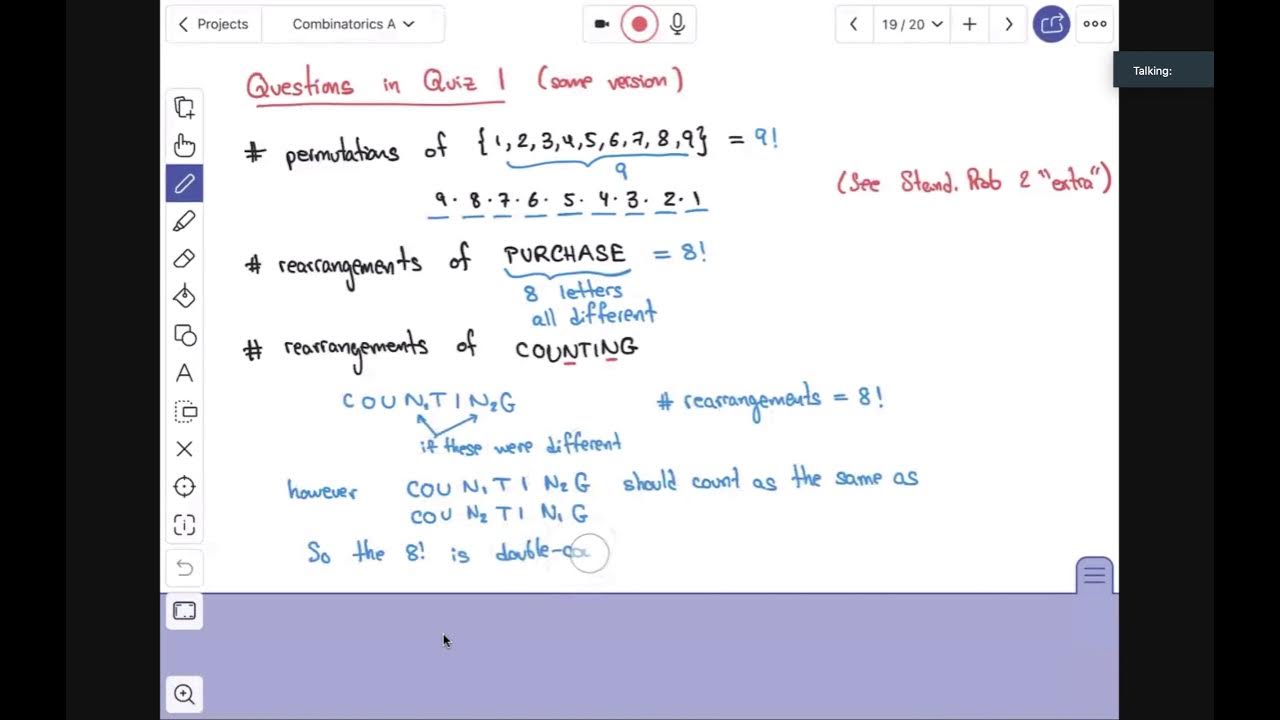 Projects
Combinatorics A
19 / 20
Talking:
Questions in Quiz 1 (some version)
# permutations of {1,2,3,4,5,6,7,8,9} = 9!
9
(See Stand. Prob 2 "extra")
9. 8. 7. 6. 5. 4. 3. 2. 1
# rearrangements of PURCHASE = 8!
8 letters
all different
# rearrangements of COUNTING
COUN₁TIN₂G # rearrangements = 8!
if these were different
however COU N₁ T I N₂ G should count as the same as
COU N₂ T I N₁ G
So the 8! is double-cou
A